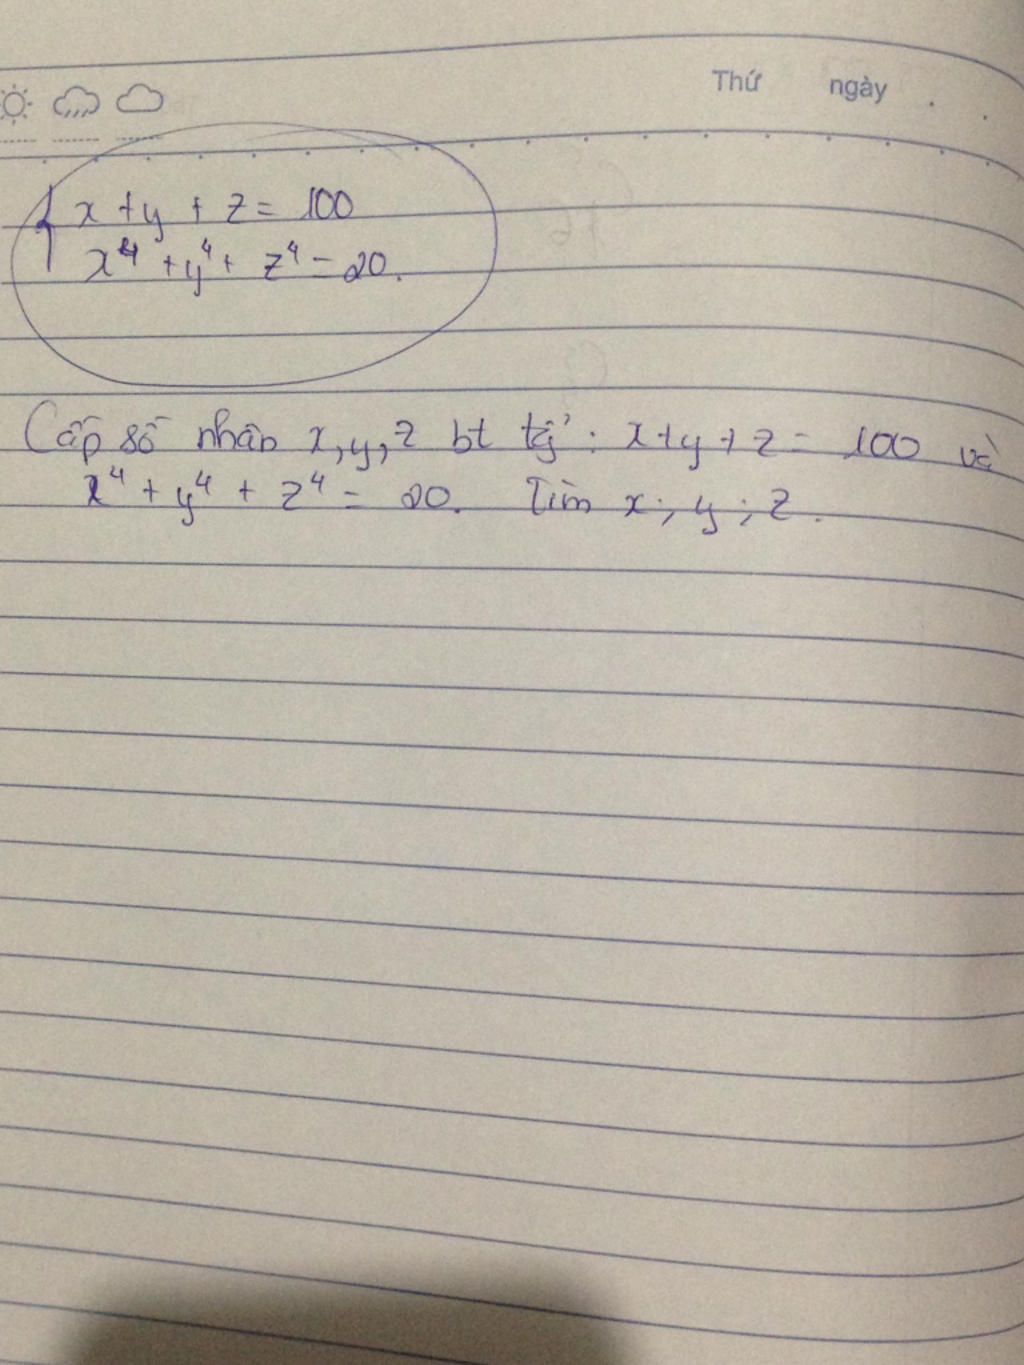 Thứ ngày
x + y + z = 100
x⁴ + y⁴ + z⁴ = 20.
Cấp số nhân x, y, z bt : x + y + z = 100 và
x⁴ + y⁴ + z⁴ = 20. Tìm x; y; z.